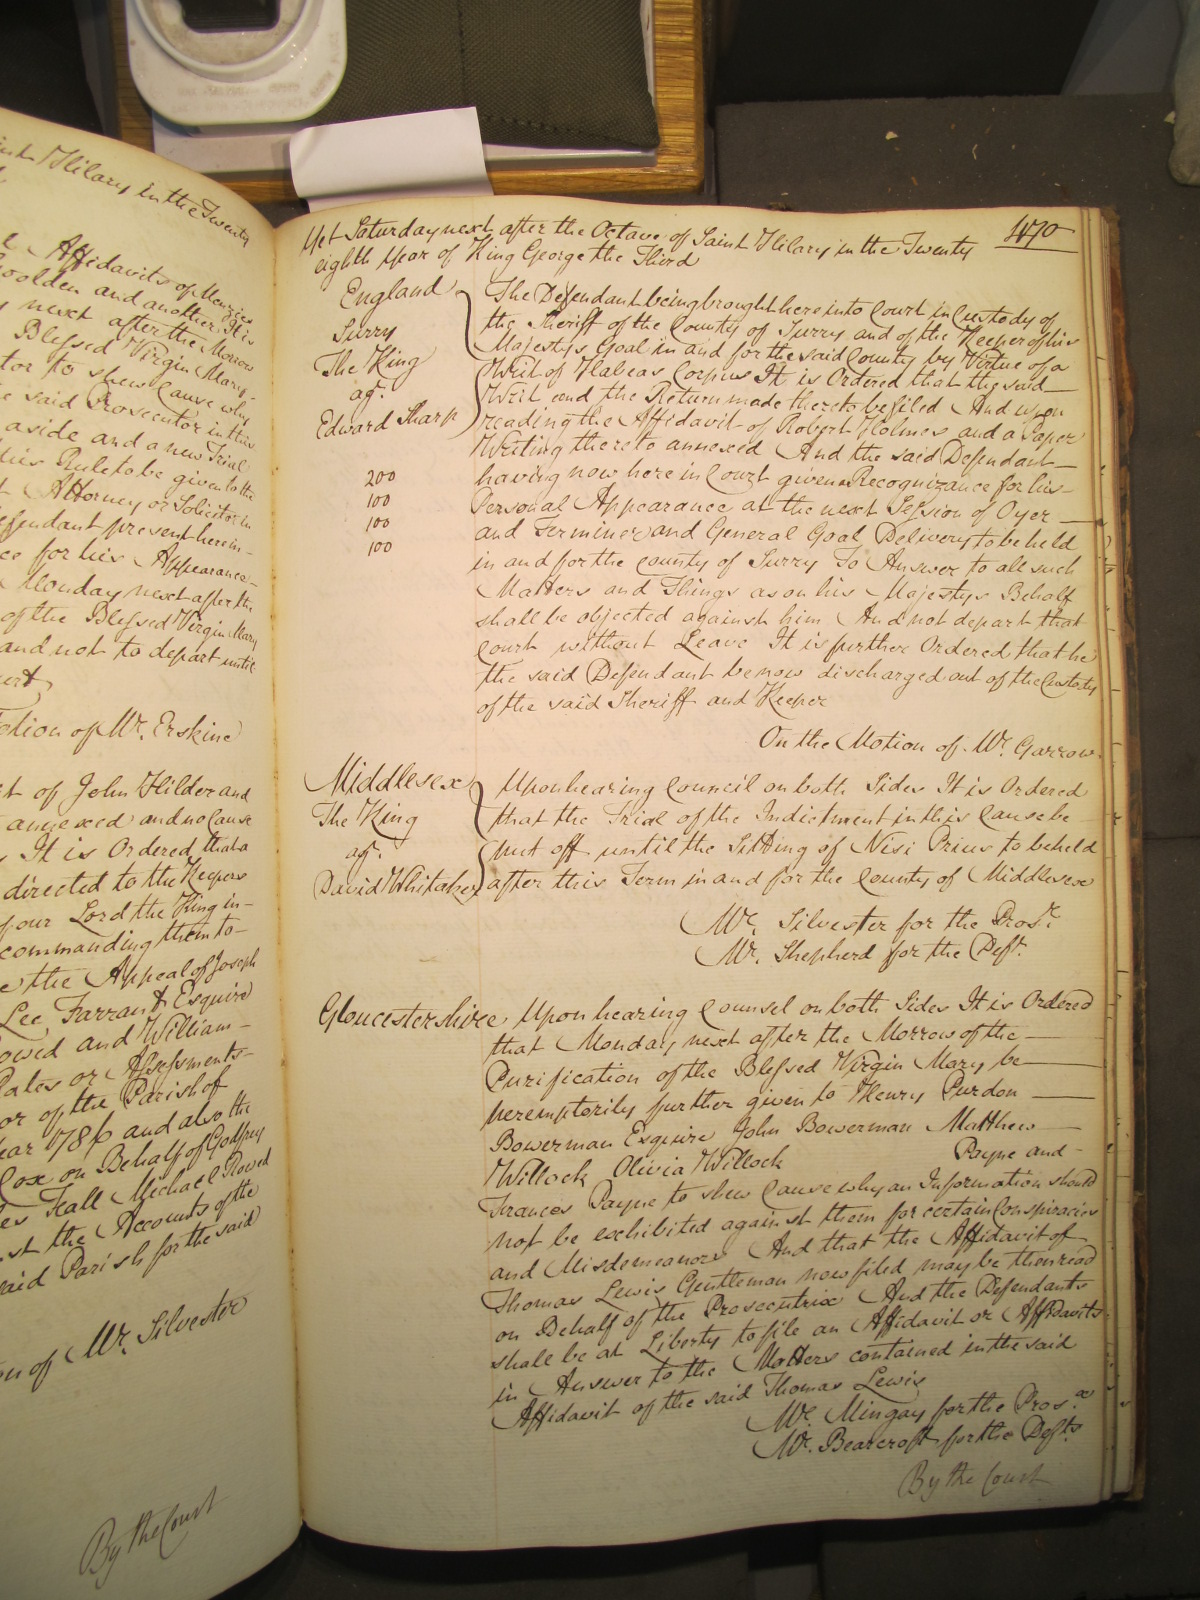 int Hilary in the Twenty
Affidavits of Menzies
oolden and another It is
y next after the Morrow
Blessed Virgin Mary
tor to shew Cause why
e said Prosecutor in this
aside and a new Trial
this Rule to be given to the
t Attorney or Solicitor in
efendant present herein
ce for his Appearance
Monday next after the
of the Blessed Virgin Mary
and not to depart until
urt
otion of Mr. Erskine
it of John Hilder and
annexed and no Cause
It is Ordered that a
directed to the Keepers
of our Lord the King in
commanding them to
e the Appeal of Joseph
Lee Farrant Esquire
owed and William
Rates or Assessments
or of the Parish of
ear 1786 and also the
Cox on Behalf of Godfrey
es Hall Michael Rowed
st the Accounts of the
said Parish for the said
on of Mr. Silvester
By the Court
470
Yet Saturday next after the Octave of Saint Hilary in the Twenty
eighth Year of King George the Third
England
Surry
The King
agt.
Edward Sharp
200
100
100
100
The Defendant being brought here into Court in Custody of
the Sheriff of the County of Surry and of the Keeper of his
Majestys Goal in and for the said County by Virtue of a
Writ of Habeas Corpus It is Ordered that the said
Writ and the Return made thereto be filed And upon
reading the Affidavit of Robert Holmes and a Paper
Writing thereto annexed And the said Defendant
having now here in Court given a Recognizance for his
Personal Appearance at the next Session of Oyer
and Terminer and General Goal Delivery to be held
in and for the county of Surry To Answer to all such
Matters and Things as on his Majestys Behalf
shall be objected against him And not depart that
Court without Leave It is further Ordered that he
the said Defendant be now discharged out of the Custody
of the said Sheriff and Keeper
On the Motion of Mr. Garrow
Middlesex
The King
agt.
David Whitaker
Upon hearing Council on both Sides It is Ordered
that the Trial of the Indictment in this Cause be
put off until the Sitting of Nisi Prius to be held
after this Term in and for the County of Middlesex
Mr. Silvester for the Prosr.
Mr. Shepherd for the Deft.
Gloucestershire Upon hearing Counsel on both Sides It is Ordered
that Monday next after the Morrow of the
Purification of the Blessed Virgin Mary be
peremptorily further given to Henry Purdon
Bowerman Esquire John Bowerman Matthew
Willock Olivia Willock Payne and
Frances Payne to shew Cause why an Information should
not be exhibited against them for certain Conspiracies
and Misdemeanors And that the Affidavit of
Thomas Lewis Gentleman now filed may be then read
on Behalf of the Prosecutrix And the Defendants
shall be at Liberty to file an Affidavit or Affidavits
in Answer to the Matters contained in the said
Affidavit of the said Thomas Lewis
Mr. Mingay for the Pros.x
Mr. Bearcroft for the Defts.
By the Court